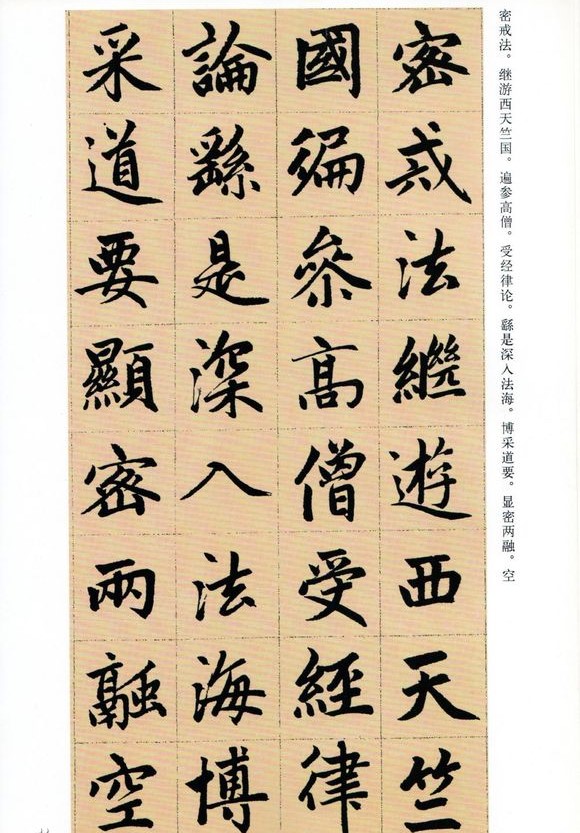 密戒法。继游西天竺国。遍参高僧。受经律论。繇是深入法海。博采道要。显密两融。空
密戒法繼遊西天竺
國徧叅高僧受經律
論繇是深入法海博
采道要顯密兩融空